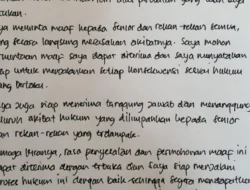 saya meminta maaf kepada senior dan rekan-rekan semua,
yang secara langsung merasakan akibatnya. Saya mohon
permohonan maaf saya dapat diterima dan saya menyatakan
siap untuk menjalankan setiap konsekuensi sesuai hukum
yang berlaku.
Saya juga siap menerima tanggung jawab dan menanggung
seluruh akibat hukum yang dilimpahkan kepada senior
dan rekan-rekan yang terdampak.
rasa penyesalan dan permohonan maaf ini
dapat diterima dengan terbuka dan saya siap menjalani
proses hukum ini dengan baik sehingga segera mendapatkan